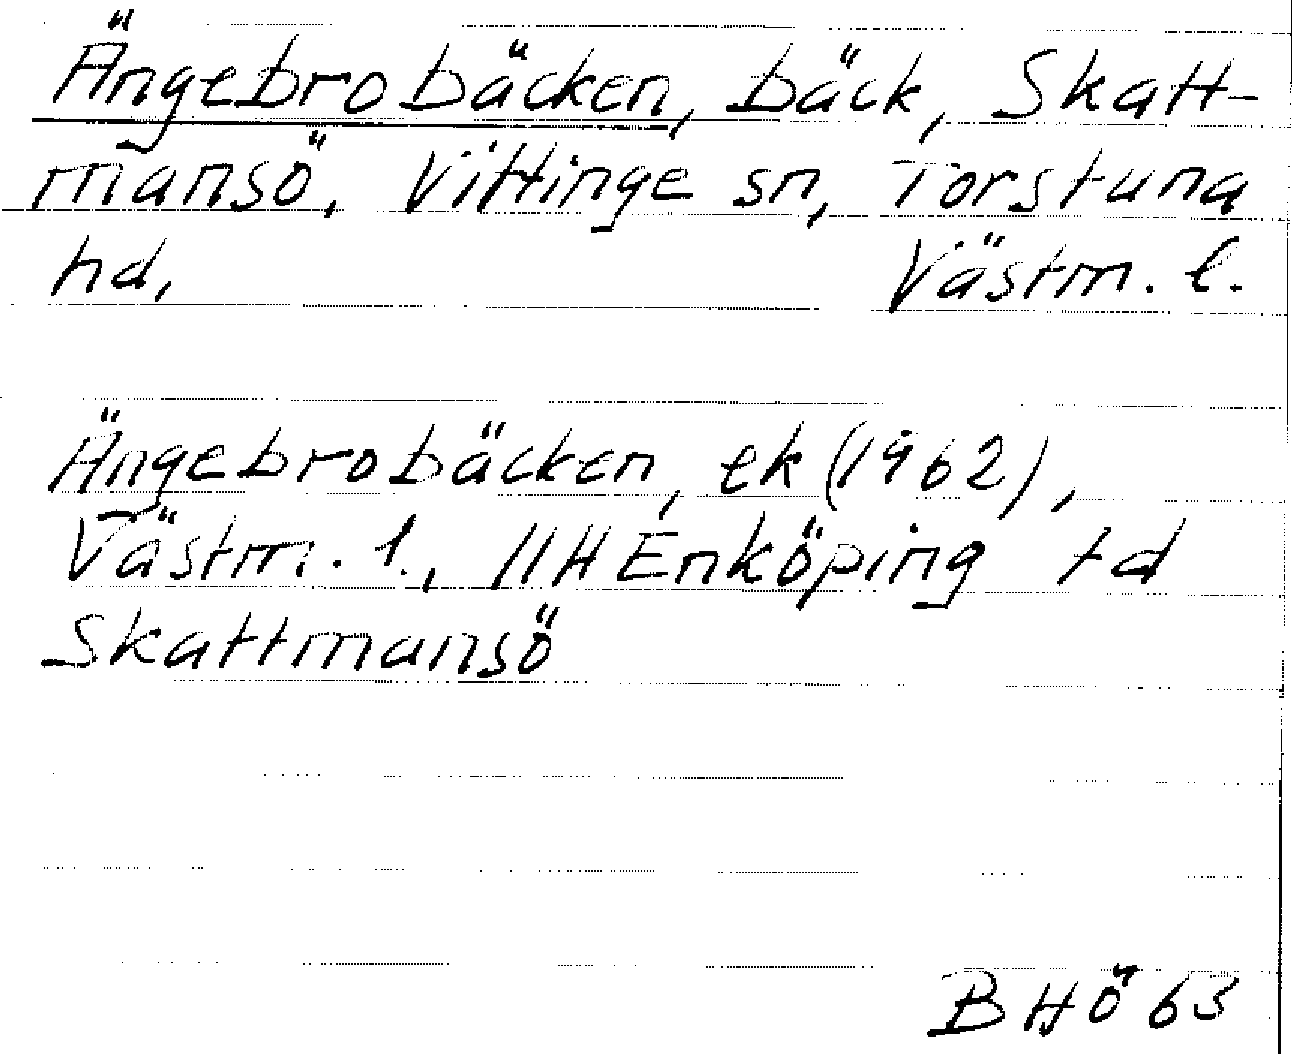 Ängebrobäcken, bäck, Skatt-
mansö, Vittinge sn, Torstuna
hd, Västm. l.
Ängebrobäcken, ek (1962),
Västm. l., 11H Enköping td
Skattmansö
BHÖ 63